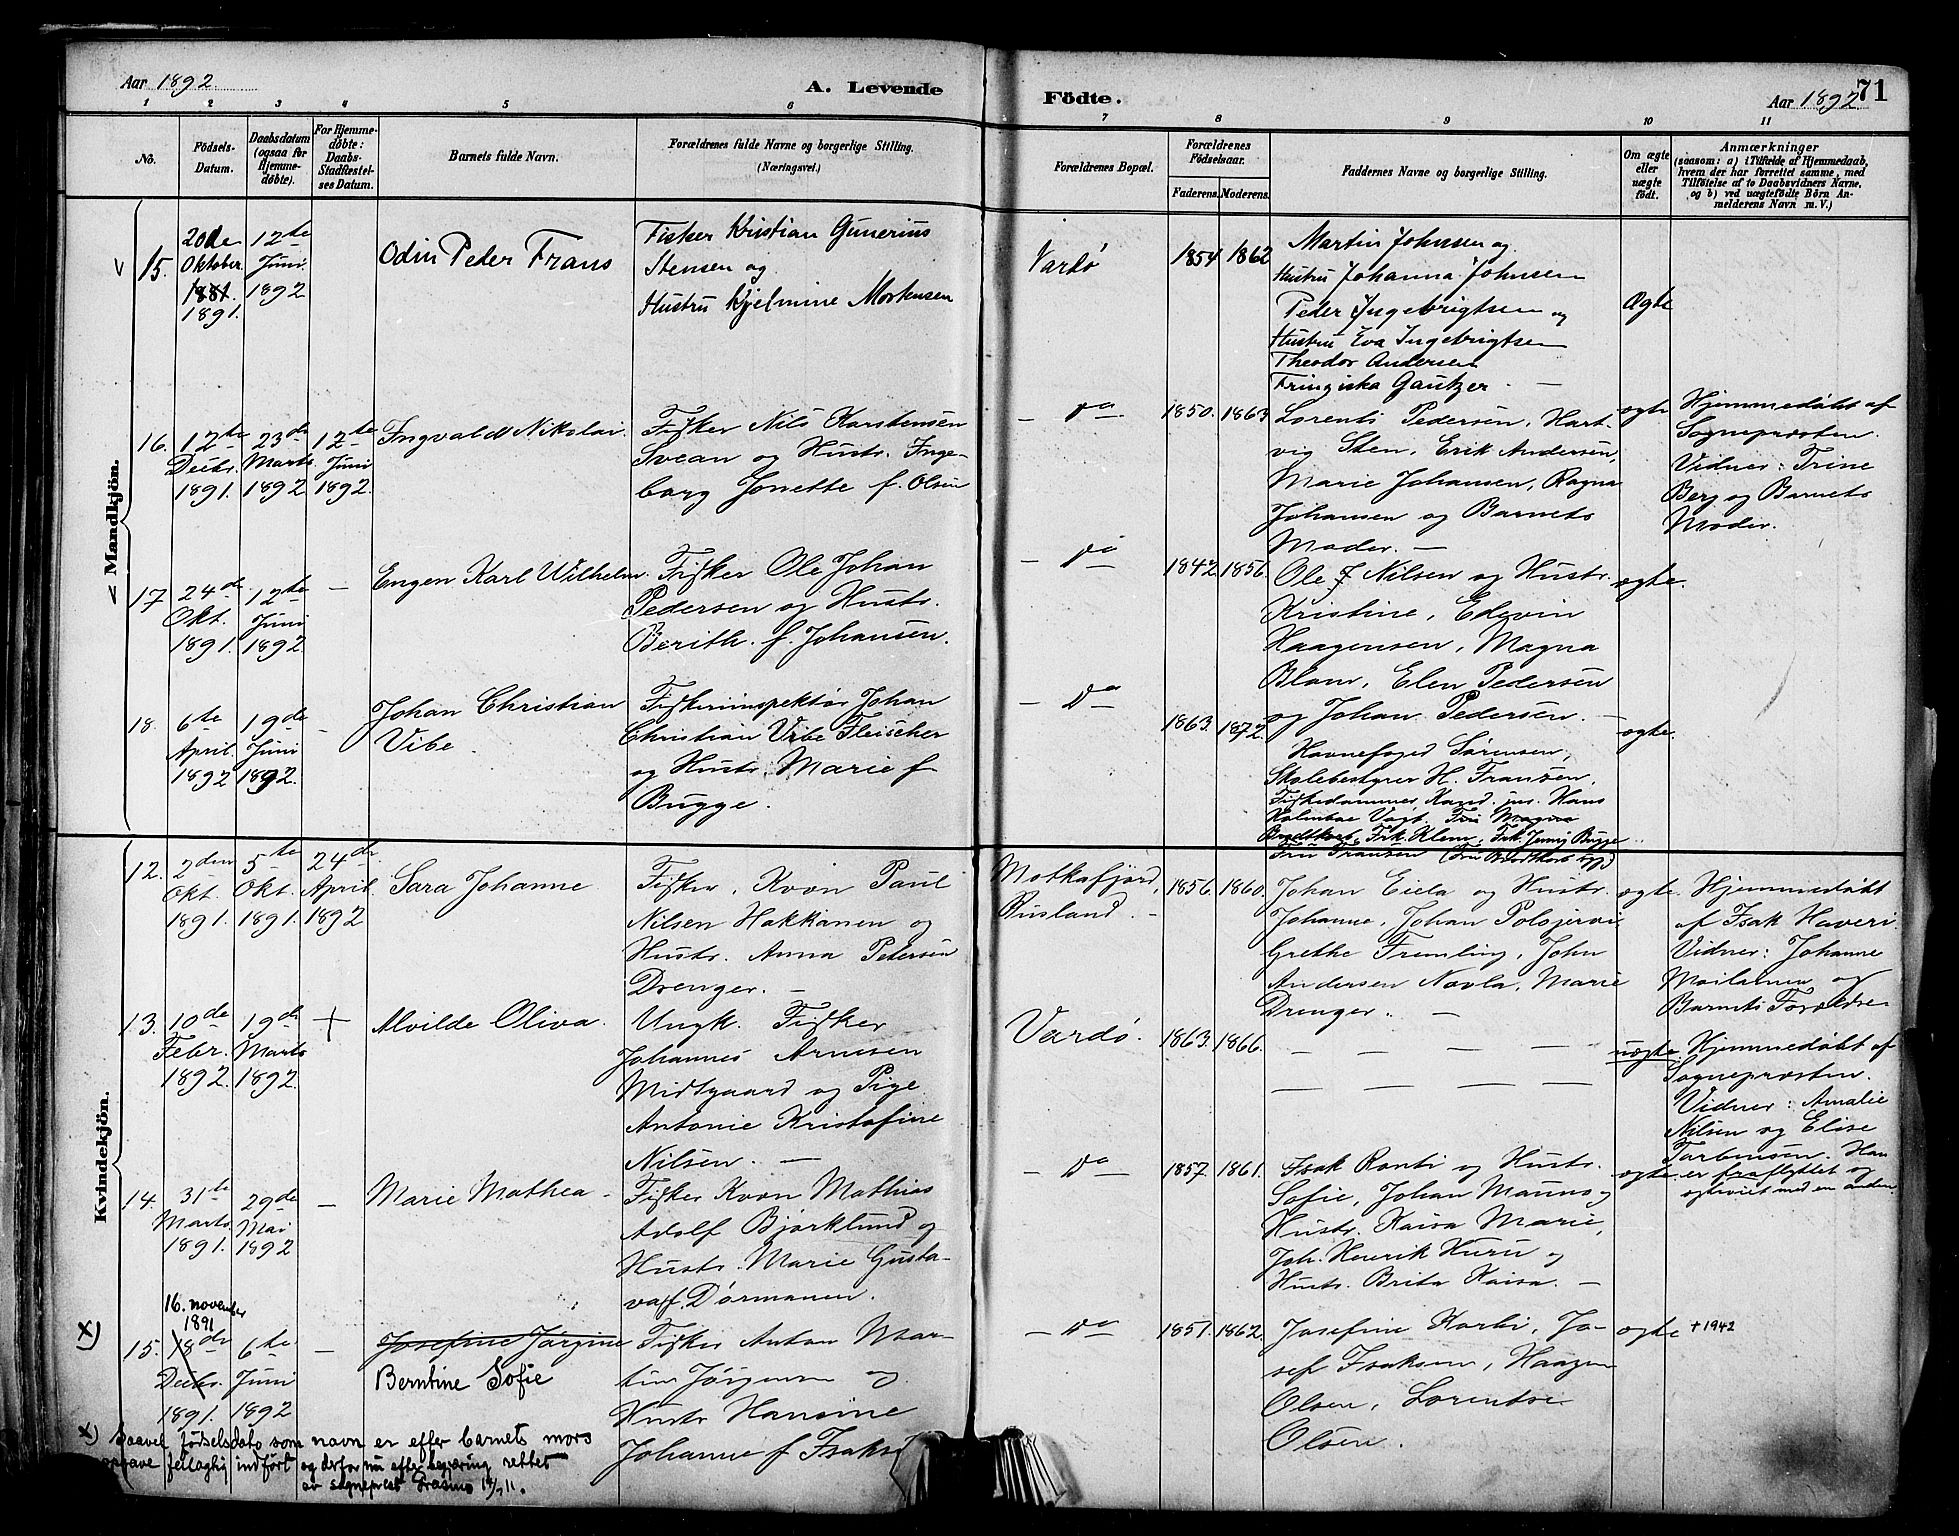 Aar 1892.
A. Levende
Födte.
Aar 1892.
71
1 2 3 4 5 6 7 8 9 10 11
No.
Födsels-
Datum.
Daabsdatum
(ogsaa for
Hjemme-
döbte).
For Hjemme-
döbte:
Daabs-
Stadfæstel-
ses Datum.
Barnets fulde Navn.
Forældrenes fulde Navne og borgerlige Stilling.
(Næringsvei.)
Forældrenes Bopæl.
Forældrenes
Födselsaar.
Faderens. Moderens.
Faddernes Navne og borgerlige Stilling.
Om ægte
eller
uægte
födt.
Anmærkninger
(saasom: a) i Tilfælde af Hjemmedaab,
hvem der har forrettet samme, med
Tilföielse af to Daabsvidners Navne,
og b) ved uægtefödte Börn An-
melderens Navn m. V.)
Mandkjön.
15.
20de
Oktober
1881.
1891.
12te
Juni
1892
Odin Peder Frans
Fisker Kristian Gunerius
Stensen og
Hustru Hjelmine Mortensen
Vardø
1854 1862
Martin Johnsen og
Hustru Johanna Johnsen
Peder Ingebrigtsen og
Hustru Eva Ingebrigtsen
Theodor Andersen
Fringiska Gautzer. —
Ægte
16.
12te
Decbr.
1891.
23de
Marts
1892
12te
Juni
1892.
Ingvald Nikolai.
Fisker Nils Karstensen
Svean og Hustr. Inge-
borg Jonette f. Olsen
— do —
1850. 1863
Lorents Pedersen, Hart-
vig Sten, Erik Andersen,
Marie Johansen, Ragna
Johansen og Barnets
Moder. —
ægte
Hjemmedøbt af
Sognepræsten.
Vidner: Trine
Berg og Barnets
Moder.
17
24de
Okt.
1891.
12te
Juni
1892.
—
Engen Karl Wilhelm.
Fisker Ole Johan
Pedersen og Hustr.
Berith. f. Johansen.
— do —
1842 1856.
Ole J Nilsen og Hustr.
Kristine, Edevin
Haagensen, Magna
Blom, Elen Pedersen
og Johan Pedersen. —
ægte.
18.
6te
April
1892
19de
Juni
1892.
—
Johan Christian
Vibe.
Fiskeriinspektør Johan
Christian Vibe Fleischer
og Hustr. Marie f
Bugge.
— do —
1863. 1872.
Havnefoged Sørensen,
Skolebestyrer H. Fransen,
Kand. jur. Hans
Vogt, Fru Magna
Frk. Klem, Frk. Jenny Bugge
Fru Fransen
ægte.
Kvindekjön.
12.
2den
Okt.
1891.
5te
Okt.
1891.
24de
April
1892
Sara Johanne
Fisker, Kvøn Paul
Nilsen Hakkanen og
Hustr. Anna Petersen
Drenger. —
Motkafjord,
Rusland. —
1856. 1860.
Johan Eiela og Hustr.
Johanne, Johan Polojervi
Grethe Fremling, John
Andersen Navla, Marie
Drenger. —
ægte.
Hjemmedøbt
af Isak Haveri.
Vidner: Johanne
Mailanen og
Barnets Forældre
13.
10de
Febr.
1892.
19de
Marts
1892.
+
Alvilde Oliva.
Ungk. Fisker
Johannes Arnesen
Midtgaard og Pige
Antonie Kristofine
Nilsen. —
Vardø.
1863. 1866.
— — — — —
— — — — —
uægte.
Hjemmedøbt af
Sognepræsten.
Vidner: Amalie
Nilsen og Elise
Torbensen. Han
er fraflyttet og
gtviet med en anden.
14.
31te
Marts
1891.
29de
Mai
1892
—
Marie Mathea
Fisker Kvøn Mathias
Adolf Bjørklund og
Hustr. Marie Gusta-
va f. Dørmanen.
— do —
1857. 1861.
Isak Ronti og Hustr.
Sofie, Johan Mauno og
Hustr. Kaisa Marie,
Joh. Henrik Kuru og
Hustr. Brita Kaisa. —
ægte.
x)
15.
16. november
1891
8de
Decbr.
1891.
6te
Juni
1892
—
Josefine Jørgine
Berntine Sofie
Fisker Anton Mar-
tin Jørgensen og
Hustr Hansine
Johanne f Isaksd
— do —
1851. 1862.
Josefine Korbi, Jo-
sef Isaksen, Haagen
Olsen, Lorentse
Olsen.
ægte
+ 1942
x) Saavel fødselsdato som navn er efter barnets mors
opgave feilagtig indført og derfor nu efter begjæring rettet
av sogneprest